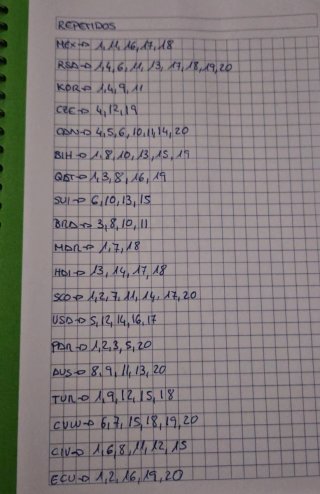 REPETIDOS
MEX→ 1, 11, 16, 17, 18
RSA→ 1, 4, 6, 11, 13, 17, 18, 19, 20
KOR→ 1, 4, 9, 11
CZE→ 4, 12, 19
CAN→ 4, 5, 6, 10, 11, 14, 20
BIH→ 1, 8, 10, 13, 15, 19
QAT→ 1, 3, 8, 16, 19
SUI→ 6, 10, 13, 15
BRA→ 3, 8, 10, 11
MAR→ 1, 7, 18
HAI→ 13, 14, 17, 18
SCO→ 1, 2, 7, 11, 14, 17, 20
USA→ 5, 12, 14, 16, 17
PAR→ 1, 2, 3, 5, 20
AUS→ 8, 9, 11, 13, 20
TUR→ 1, 9, 12, 15, 18
CUW→ 6, 7, 15, 18, 19, 20
CIV→ 1, 6, 8, 11, 12, 15
ECU→ 1, 2, 16, 19, 20